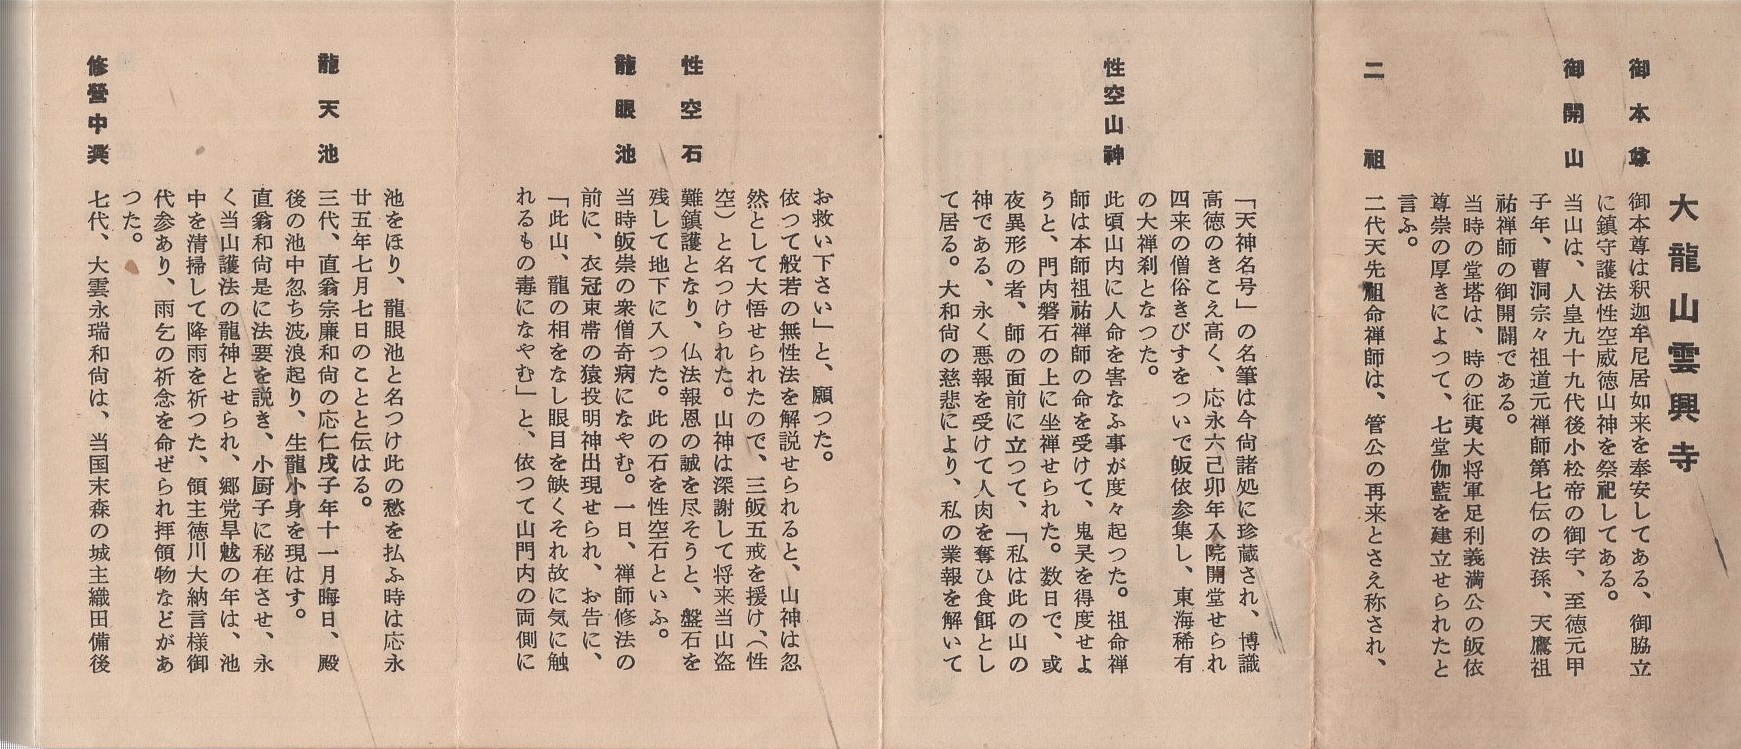 大龍山雲興寺
御本尊　御本尊は釈迦牟尼居如来を奉安してある、御脇立
に鎮守護法性空威徳山神を祭祀してある。
御開山　当山は、人皇九十九代後小松帝の御宇、至徳元甲
子年、曹洞宗々祖道元禅師第七伝の法孫、天鷹祖
祐禅師の御開闢である。
当時の堂塔は、時の征夷大将軍足利義満公の皈依
尊崇の厚きによつて、七堂伽藍を建立せられたと
言ふ。
二祖　二代天先祖命禅師は、管公の再来とさえ称され、
「天神名号」の名筆は今尙諸処に珍蔵され、博識
高徳のきこえ高く、応永六己卯年入院開堂せられ
四来の僧俗きびすをついで皈依参集し、東海稀有
の大禅刹となつた。
性空山神　此頃山内に人命を害なふ事が度々起つた。祖命禅
師は本師祖祐禅師の命を受けて、鬼旻を得度せよ
うと、門内磐石の上に坐禅せられた。数日で、或
夜異形の者、師の面前に立つて、「私は此の山の
神である、永く悪報を受けて人肉を奪ひ食餌とし
て居る。大和尙の慈悲により、私の業報を解いて
お救い下さい」と、願つた。
依つて般若の無性法を解説せられると、山神は忽
然として大悟せられたので、三皈五戒を援け、（性
空）と名つけられた。山神は深謝して将来当山盗
性空石　難鎮護となり、仏法報恩の誠を尽そうと、盤石を
残して地下に入つた。此の石を性空石といふ。
龍眼池　当時皈崇の衆僧奇病になやむ。一日、禅師修法の
前に、衣冠束帯の猿投明神出現せられ、お告に、
「此山、龍の相をなし眼目を缺くそれ故に気に触
れるもの毒になやむ」と、依つて山門内の両側に
池をほり、龍眼池と名つけ此の愁を払ふ時は応永
廿五年七月七日のことと伝はる。
龍天池　三代、直翁宗廉和尙の応仁戌子年十一月晦日、殿
後の池中忽ち波浪起り、生龍小身を現はす。
直翁和尙是に法要を説き、小厨子に秘在させ、永
く当山護法の龍神とせられ、郷党旱魃の年は、池
中を清掃して降雨を祈つた、領主徳川大納言様御
代参あり、雨乞の祈念を命ぜられ拝領物などがあ
つた。
修營中興　七代、大雲永瑞和尙は、当国末森の城主織田備後